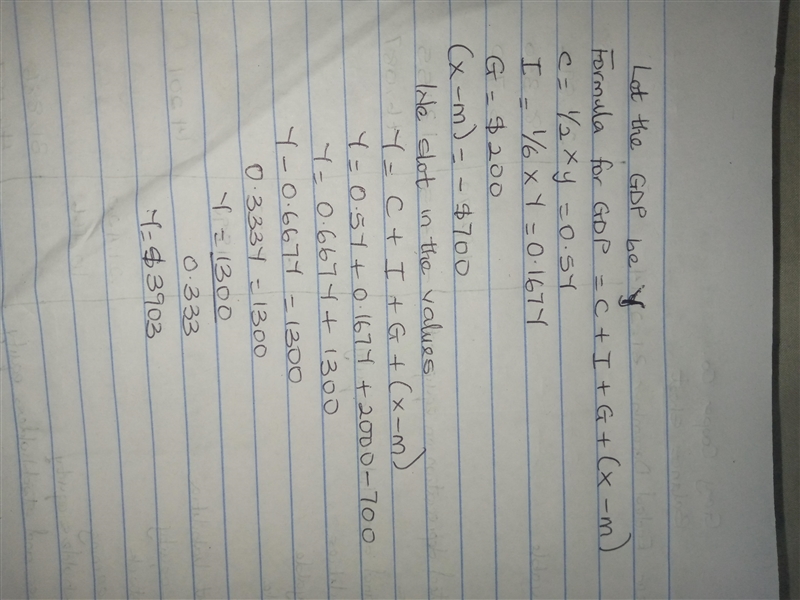 Let the GDP be y
Formula for GDP = C + I + G + (x - m)
C = 1/2 x y = 0.5Y
I = 1/6 x Y = 0.167Y
G = $200
(x - m) = - $700
We slot in the values
Y = C + I + G + (x - m)
Y = 0.5Y + 0.167Y + 2000 - 700
Y = 0.667Y + 1300
Y - 0.667Y = 1300
0.333Y = 1300
Y = 1300
0.333
Y = $3903